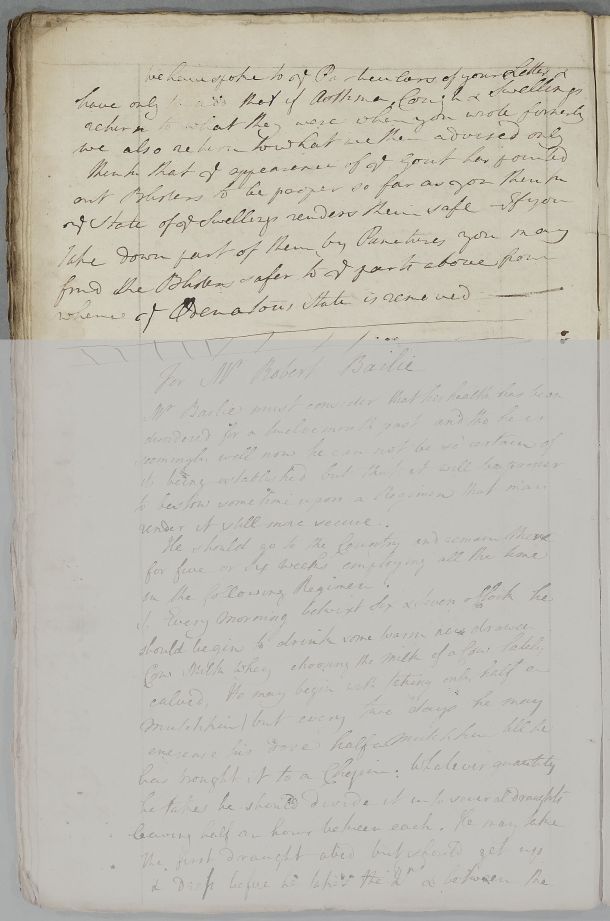 we have spoke to yͤ Particulars of your Letter &
have only to add that if Asthma, Cough & Swellings
return to what they were when you wrote formerly
we also return to what we then advised only
think that yͤ appearance of yͤ Gout has pointed
out Blisters to be proper so far as you think
yͤ State of yͤ Swellings renders them safe - If you
take down part of them by Punctures you may
find the Blisters safer to yͤ parts above from
whence yͤ Oedematous State is removed
For Mr Robert Bailie
Mr Bailie must consider that his health has been
disordered for a twelvemonth past and tho he is
seemingly well now he can not be so certain of
its being established but that it will be proper
to bestow some time upon a Regimen that may
render it still more secure.
He should go to the Country and remain there
for five or six weeks employing all the time
in the following Regimen.
1. Every morning betwixt six & seven o'Clock he
should begin to drink some warm new drawn
Cow Milk Whey choosing the milk of a Cow lately
calved. He may begin with taking only half a
Mutchkin but every two days he may
encrease his dose half a mutchkin till he
has brought it to a Chopin: Whatever quantity
he takes he should divide it into several draughts
leaving half an hour between each. He may take
the first draught abed but should get up
& Dress before he takes the 2d & between the